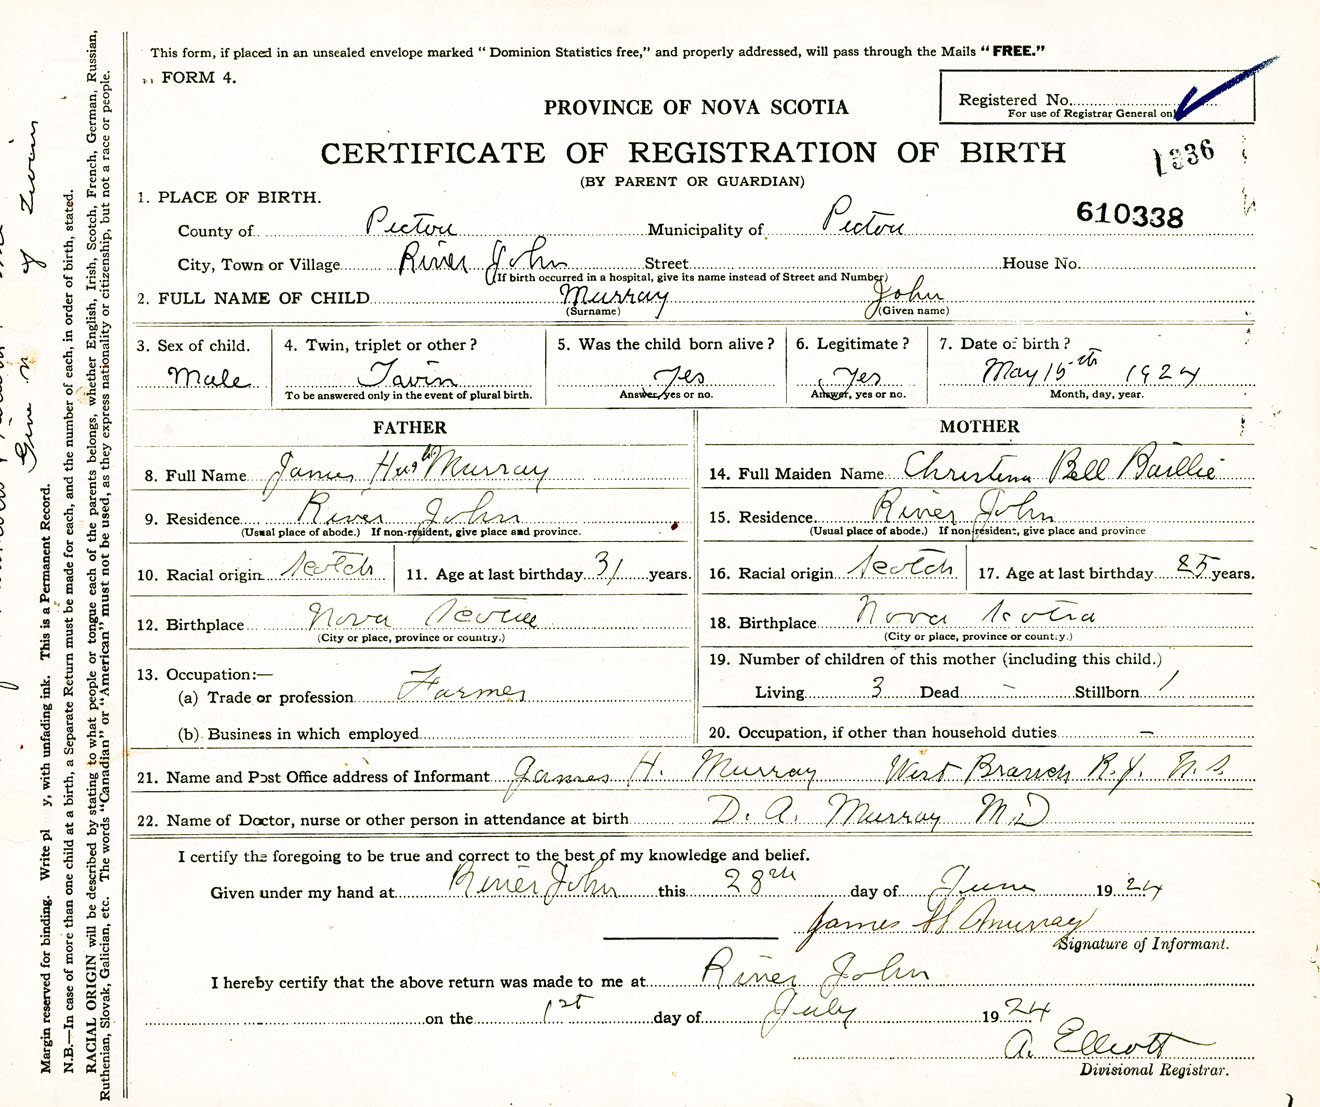 This form, if placed in an unsealed envelope marked “ Dominion Statistics free,” and properly addressed, will pass through the Mails “ FREE.”
FORM 4.
Registered No.
For use of Registrar General only
PROVINCE OF NOVA SCOTIA
CERTIFICATE OF REGISTRATION OF BIRTH
1336
(BY PARENT OR GUARDIAN)
1. PLACE OF BIRTH.
610338
County of Pictou Municipality of Pictou
City, Town or Village River John Street House No.
(If birth occurred in a hospital, give its name instead of Street and Number)
2. FULL NAME OF CHILD Murray John
(Surname) (Given name)
3. Sex of child. 4. Twin, triplet or other ? 5. Was the child born alive ? 6. Legitimate ? 7. Date of birth ?
Male Twin Yes Yes May 15th 1924
To be answered only in the event of plural birth. Answer, yes or no. Answer, yes or no. Month, day, year.
FATHER MOTHER
8. Full Name James Hugh Murray 14. Full Maiden Name Christina Bell Baillie
9. Residence River John 15. Residence River John
(Usual place of abode.) If non-resident, give place and province. (Usual place of abode.) If non-resident, give place and province
10. Racial origin Scotch 11. Age at last birthday 31 years. 16. Racial origin Scotch 17. Age at last birthday 25 years.
12. Birthplace Nova Scotia 18. Birthplace Nova Scotia
(City or place, province or country.) (City or place, province or country.)
13. Occupation:— 19. Number of children of this mother (including this child.)
(a) Trade or profession Farmer Living 3 Dead - Stillborn 1
(b) Business in which employed 20. Occupation, if other than household duties —
21. Name and Post Office address of Informant James H. Murray West Branch R.J. N.S.
22. Name of Doctor, nurse or other person in attendance at birth D. A. Murray M.D
I certify the foregoing to be true and correct to the best of my knowledge and belief.
Given under my hand at River John this 28th day of June 1924
James H Murray
Signature of Informant.
I hereby certify that the above return was made to me at River John
on the 1st day of July 1924
A. Elliott
Divisional Registrar.
Give n of Twins
Margin reserved for binding. Write pl y, with unfading ink. This is a Permanent Record.
N.B.—In case of more than one child at a birth, a Separate Return must be made for each, and the number of each, in order of birth, stated.
RACIAL ORIGIN will be described by stating to what people or tongue each of the parents belongs, whether English, Irish, Scotch, French, German, Russian,
Ruthenian, Slovak, Galician, etc. The words “Canadian” or “American” must not be used, as they express nationality or citizenship, but not a race or people.